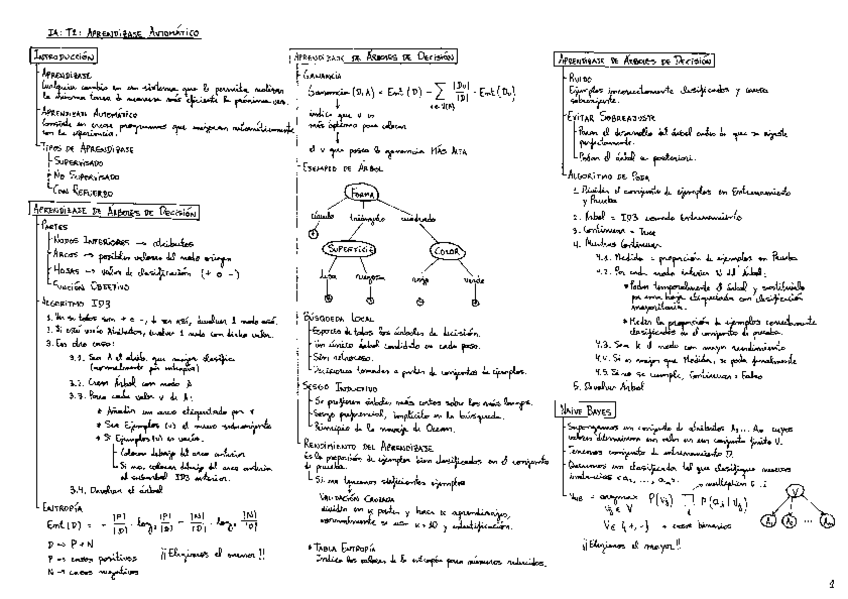 IA: T2: APRENDIZAJE AUTOMÁTICO
INTRODUCCIÓN
APRENDIZAJE
Cualquier cambio en un sistema que le permita realizar
la misma tarea de manera más eficiente la próxima vez.
APRENDIZAJE AUTOMÁTICO
Consiste en crear programas que mejoran automáticamente
con la experiencia.
TIPOS DE APRENDIZAJE
SUPERVISADO
NO SUPERVISADO
CON REFUERZO
APRENDIZAJE DE ÁRBOLES DE DECISIÓN
PARTES
NODOS INTERIORES → atributos
ARCOS → posibles valores del nodo origen
HOJAS → valor de clasificación (+ o -)
FUNCIÓN OBJETIVO
ALGORITMO ID3
1. todos son + o -, devolver 1 nodo
2. Si está vacío Atributos, devolver 1 nodo con dicho valor.
3. En otro caso:
3.1. Sea A el atrib. que mejor clasifica
(normalmente por entropía)
3.2. Crear Árbol con nodo
3.3. Para cada valor v de A:
* Añadir un arco etiquetado por v
* Sea Ejemplos (v) el nuevo subconjunto
* Si Ejemplos (v) es vacío.
Colocar debajo del arco anterior
Si no, colocar debajo del arco anterior
el subárbol ID3 anterior.
3.4. Devolver el árbol
ENTROPÍA
Ent (D) = - |P|/|D| · log₂ |P|/|D| - |N|/|D| · log₂ |N|/|D|
D → P + N
P → casos positivos ¡¡Elegimos el menor!!
N → casos negativos
APRENDIZAJE DE ÁRBOLES DE DECISIÓN
GANANCIA
Ganancia (D, A) = Ent (D) - ∑ |Dv|/|D| · Ent (Dv)
indica que v es
más óptimo para colocar
el v que posea la ganancia MÁS ALTA
EJEMPLO DE ÁRBOL
FORMA
círculo triángulo cuadrado
SUPERFICIE COLOR
lisa rugosa rojo verde
BÚSQUEDA LOCAL
Espacio de todos los árboles de decisión.
Un único árbol candidato en cada paso.
Sin retroceso.
Decisiones tomadas a partir de conjuntos de ejemplos.
SESGO INDUCTIVO
Se prefieren árboles más cortos sobre los más largos.
Sesgo preferencial, implícito en la búsqueda.
Principio de la navaja de Occam.
RENDIMIENTO DEL APRENDIZAJE
Es la proporción de ejemplos bien clasificados en el conjunto
de prueba.
Si no tenemos suficientes ejemplos
VALIDACIÓN CRUZADA
dividir en k partes y hacer k aprendizajes,
normalmente se usa k = 10 y
* TABLA ENTROPÍA
Indica los valores de la entropía para números reducidos.
APRENDIZAJE DE ÁRBOLES DE DECISIÓN
RUIDO
Ejemplos incorrectamente clasificados y causa
sobreajuste.
EVITAR SOBREAJUSTE
Parar el desarrollo del árbol antes de que se ajuste
perfectamente.
Podar el árbol a posteriori.
ALGORITMO DE PODA
1. Dividir el conjunto de ejemplos en Entrenamiento
y Prueba
2. Árbol = ID3 usando Entrenamiento
3. Continuar = True
4. Mientras Continuar:
4.1. Medida = proporción de ejemplos en Prueba
4.2. Por cada nodo interior N del Árbol:
* Podar temporalmente el Árbol y sustituirlo
por una hoja etiquetada con clasificación
mayoritaria.
* Medir la proporción de ejemplos correctamente
clasificados en el conjunto de prueba.
4.3. Sea K el nodo con mayor rendimiento
4.4. Si es mejor que Medida, se poda finalmente
4.5. Si no se cumple, Continuar = Falso
5. Devolver Árbol
NAIVE BAYES
Supongamos un conjunto de atributos A₁... Aₙ cuyos
valores determinan un valor en un conjunto finito V.
Tenemos conjunto de entrenamiento D.
Queremos un clasificador tal que clasifique nuevas
instancias <a₁, ..., aₙ>.
V_NB = argmax P(vj) ∏ P(ai | vj)
vj ∈ V
V ∈ {+, -} → casos binarios
V
A₁ A₂ ... Aₙ
¡¡Elegimos el mayor!!
1